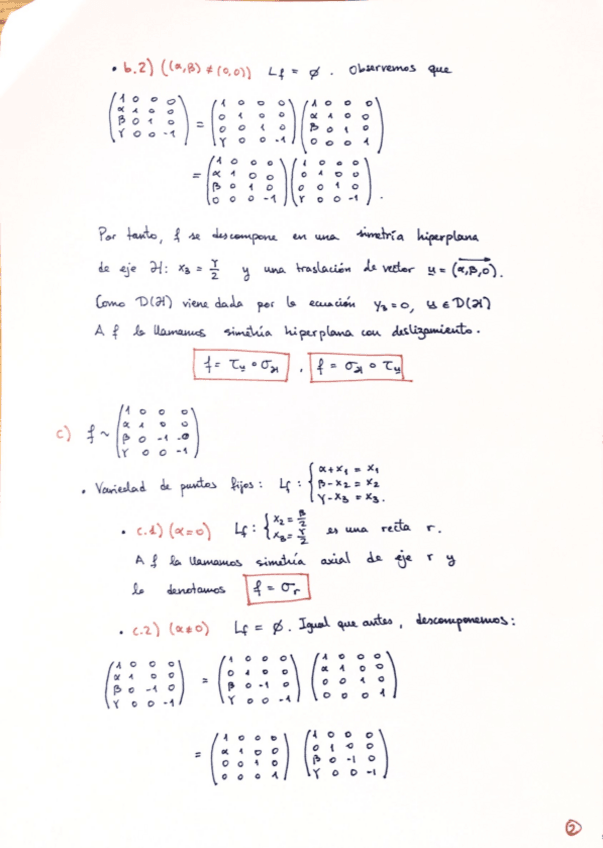 • b.2) ((α,β) ≠ (0,0)) Lf = ∅. Observemos que
(1 0 0 0; α 1 0 0; β 0 1 0; γ 0 0 -1) = (1 0 0 0; 0 1 0 0; 0 0 1 0; γ 0 0 -1) (1 0 0 0; α 1 0 0; β 0 1 0; 0 0 0 1)
= (1 0 0 0; α 1 0 0; β 0 1 0; 0 0 0 -1) (1 0 0 0; 0 1 0 0; 0 0 1 0; γ 0 0 -1).
Por tanto, f se descompone en una simetría hiperplana
de eje H: x₃ = γ/2 y una traslación de vector u = (α,β,0).
Como D(H) viene dada por la ecuación y₃=0, u ∈ D(H)
A f la llamamos simetría hiperplana con deslizamiento.
f = τu ∘ σH , f = σH ∘ τu
c) f ~ (1 0 0 0; α 1 0 0; β 0 -1 0; γ 0 0 -1)
• Variedad de puntos fijos: Lf: { α+x₁ = x₁
β-x₂ = x₂
γ-x₃ = x₃.
• c.1) (α=0) Lf: { x₂ = β/2 x₃ = γ/2 es una recta r.
A f la llamamos simetría axial de eje r y
lo denotamos f = σr
• c.2) (α≠0) Lf = ∅. Igual que antes, descomponemos:
(1 0 0 0; α 1 0 0; β 0 -1 0; γ 0 0 -1) = (1 0 0 0; 0 1 0 0; β 0 -1 0; γ 0 0 -1) (1 0 0 0; α 1 0 0; 0 0 1 0; 0 0 0 1)
= (1 0 0 0; α 1 0 0; 0 0 1 0; 0 0 0 1) (1 0 0 0; 0 1 0 0; β 0 -1 0; γ 0 0 -1)
2